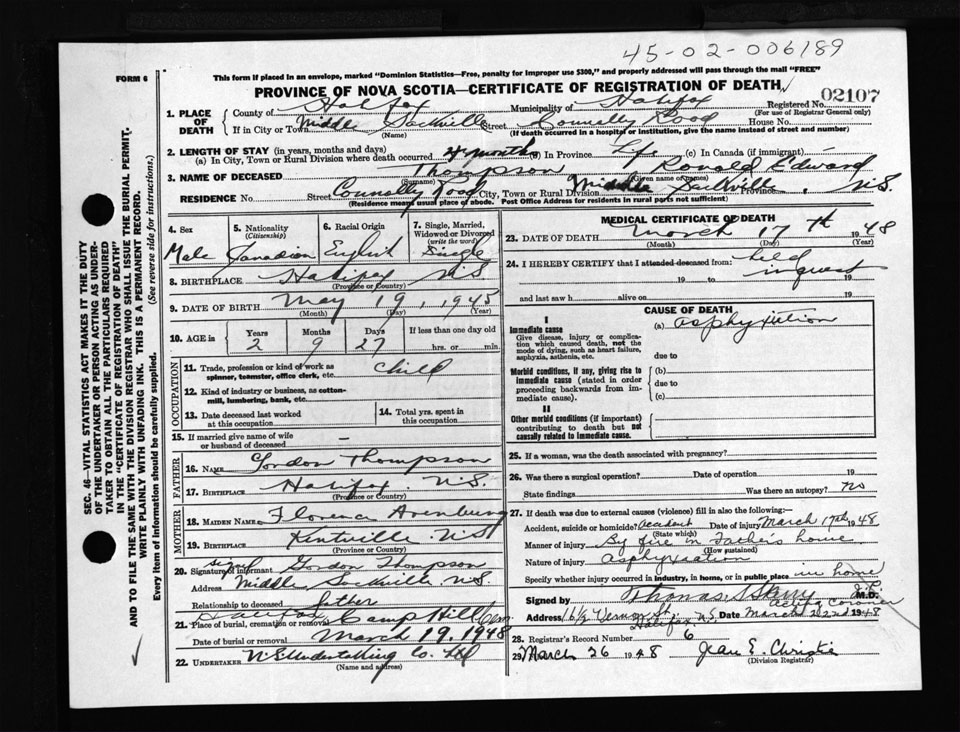 45-02-006189
FORM 6
This form if placed in an envelope, marked "Dominion Statistics—Free, penalty for improper use $300," and properly addressed will pass through the mail "FREE"
PROVINCE OF NOVA SCOTIA—CERTIFICATE OF REGISTRATION OF DEATH
02107
1. PLACE OF DEATH County of Halifax Municipality of Halifax Registered No. (For use of Registrar General only)
If in City or Town Middle Sackville (Name) Street Connolly Road House No.
(If death occurred in a hospital or institution, give the name instead of street and number)
2. LENGTH OF STAY (in years, months and days)
(a) In City, Town or Rural Division where death occurred 4 months (b) In Province Life (c) In Canada (if immigrant)
3. NAME OF DECEASED Thompson (Surname) Ronald Edward (Given name or names)
RESIDENCE No. Street Connolly Road City, Town or Rural Division Middle Sackville, N.S. Province
(Residence means usual place of abode. Post Office Address for residents in rural parts not sufficient)
4. Sex Male
5. Nationality (Citizenship) Canadian
6. Racial Origin English
7. Single, Married, Widowed or Divorced (write the word) Single
8. BIRTHPLACE Halifax N.S. (Province or Country)
9. DATE OF BIRTH May 19, 1945 (Month) (Day) (Year)
10. AGE in Years 2 Months 9 Days 27 If less than one day old hrs. or min.
OCCUPATION
11. Trade, profession or kind of work as spinner, teamster, office clerk, etc. child
12. Kind of industry or business, as cotton-mill, lumbering, bank, etc.
13. Date deceased last worked at this occupation
14. Total yrs. spent in this occupation
15. If married give name of wife or husband of deceased —
FATHER
16. NAME Gordon Thompson
17. BIRTHPLACE Halifax N.S. (Province or Country)
MOTHER
18. MAIDEN NAME Florence
19. BIRTHPLACE Kintville N.S. (Province or Country)
20. Signature of informant signed Gordon Thompson
Address Middle Sackville N.S.
Relationship to deceased father
21. Place of burial, cremation or removal Halifax Camp Hill Cem
Date of burial or removal March 19, 1948
22. UNDERTAKER N.S. Undertaking Co. Ltd
(Name and address)
MEDICAL CERTIFICATE OF DEATH
23. DATE OF DEATH March 17th 1948
(Month) (Day) (Year)
24. I HEREBY CERTIFY that I attended deceased from: held inquest
19 to 19
and last saw h alive on 19
CAUSE OF DEATH
I
Immediate cause
Give disease, injury or complication which caused death, not the mode of dying, such as heart failure, asphyxia, asthenia, etc.
(a) asphyxiation
due to
Morbid conditions, if any, giving rise to immediate cause (stated in order proceeding backwards from immediate cause).
(b)
due to
(c)
II
Other morbid conditions (if important) contributing to death but not causally related to immediate cause.
25. If a woman, was the death associated with pregnancy?
26. Was there a surgical operation? Date of operation 19
State findings Was there an autopsy? no
27. If death was due to external causes (violence) fill in also the following:—
Accident, suicide or homicide? Accident (State which) Date of injury March 17th 1948
Manner of injury By fire in Father's home (How sustained)
Nature of injury asphyxiation
Specify whether injury occurred in industry, in home, or in public place in home
Signed by Thomas M.D.
acting coroner
Address Vernon St. Halifax, N.S. Date March 22nd 1948
28. Registrar's Record Number 6
29. March 26 1948 Jean E. Christie
(Division Registrar)
SEC. 46—VITAL STATISTICS ACT MAKES IT THE DUTY
OF THE UNDERTAKER OR PERSON ACTING AS UNDERTAKER TO OBTAIN ALL THE PARTICULARS REQUIRED
IN THE "CERTIFICATE OF REGISTRATION OF DEATH"
AND TO FILE THE SAME WITH THE DIVISION REGISTRAR WHO SHALL ISSUE THE BURIAL PERMIT.
WRITE PLAINLY WITH UNFADING INK. THIS IS A PERMANENT RECORD.
Every item of information should be carefully supplied. (See reverse side for instructions.)